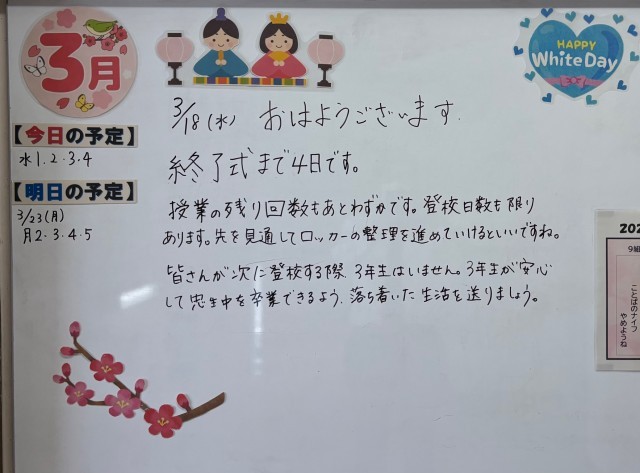 3月
HAPPY
White Day
3/18(水) おはようございます.
【今日の予定】
水1.2.3.4
終了式まで4日です。
【明日の予定】
3/23(月)
月2.3.4.5
授業の残り回数もあとわずかです。登校日数も限り
あります。先を見通してロッカーの整理を進めていけるといいですね。
皆さんが次に登校する際、3年生はいません。3年生が安心
して忠生中を卒業できるよう、落ち着いた生活を送りましょう。
202
9組
ことばのナイフ
やめようね